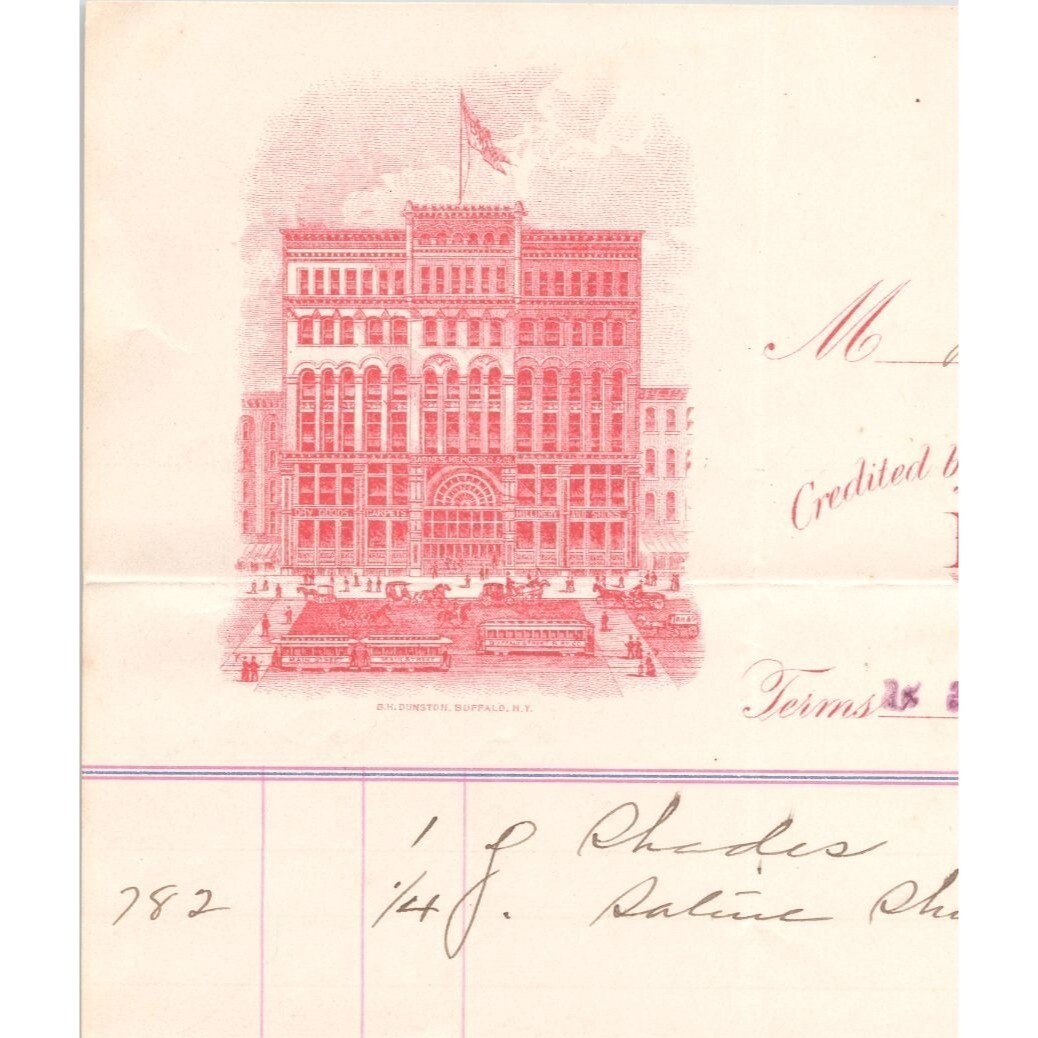 BARNES, HENGERER &
DRY GOODS CARPETS MILLINERY
MAIN STREET MAIN STREET
B.H. DUNSTON, BUFFALO, N.Y.
M
Credited b
Terms
1 g Shades
782 1/4 g. Satine Sh